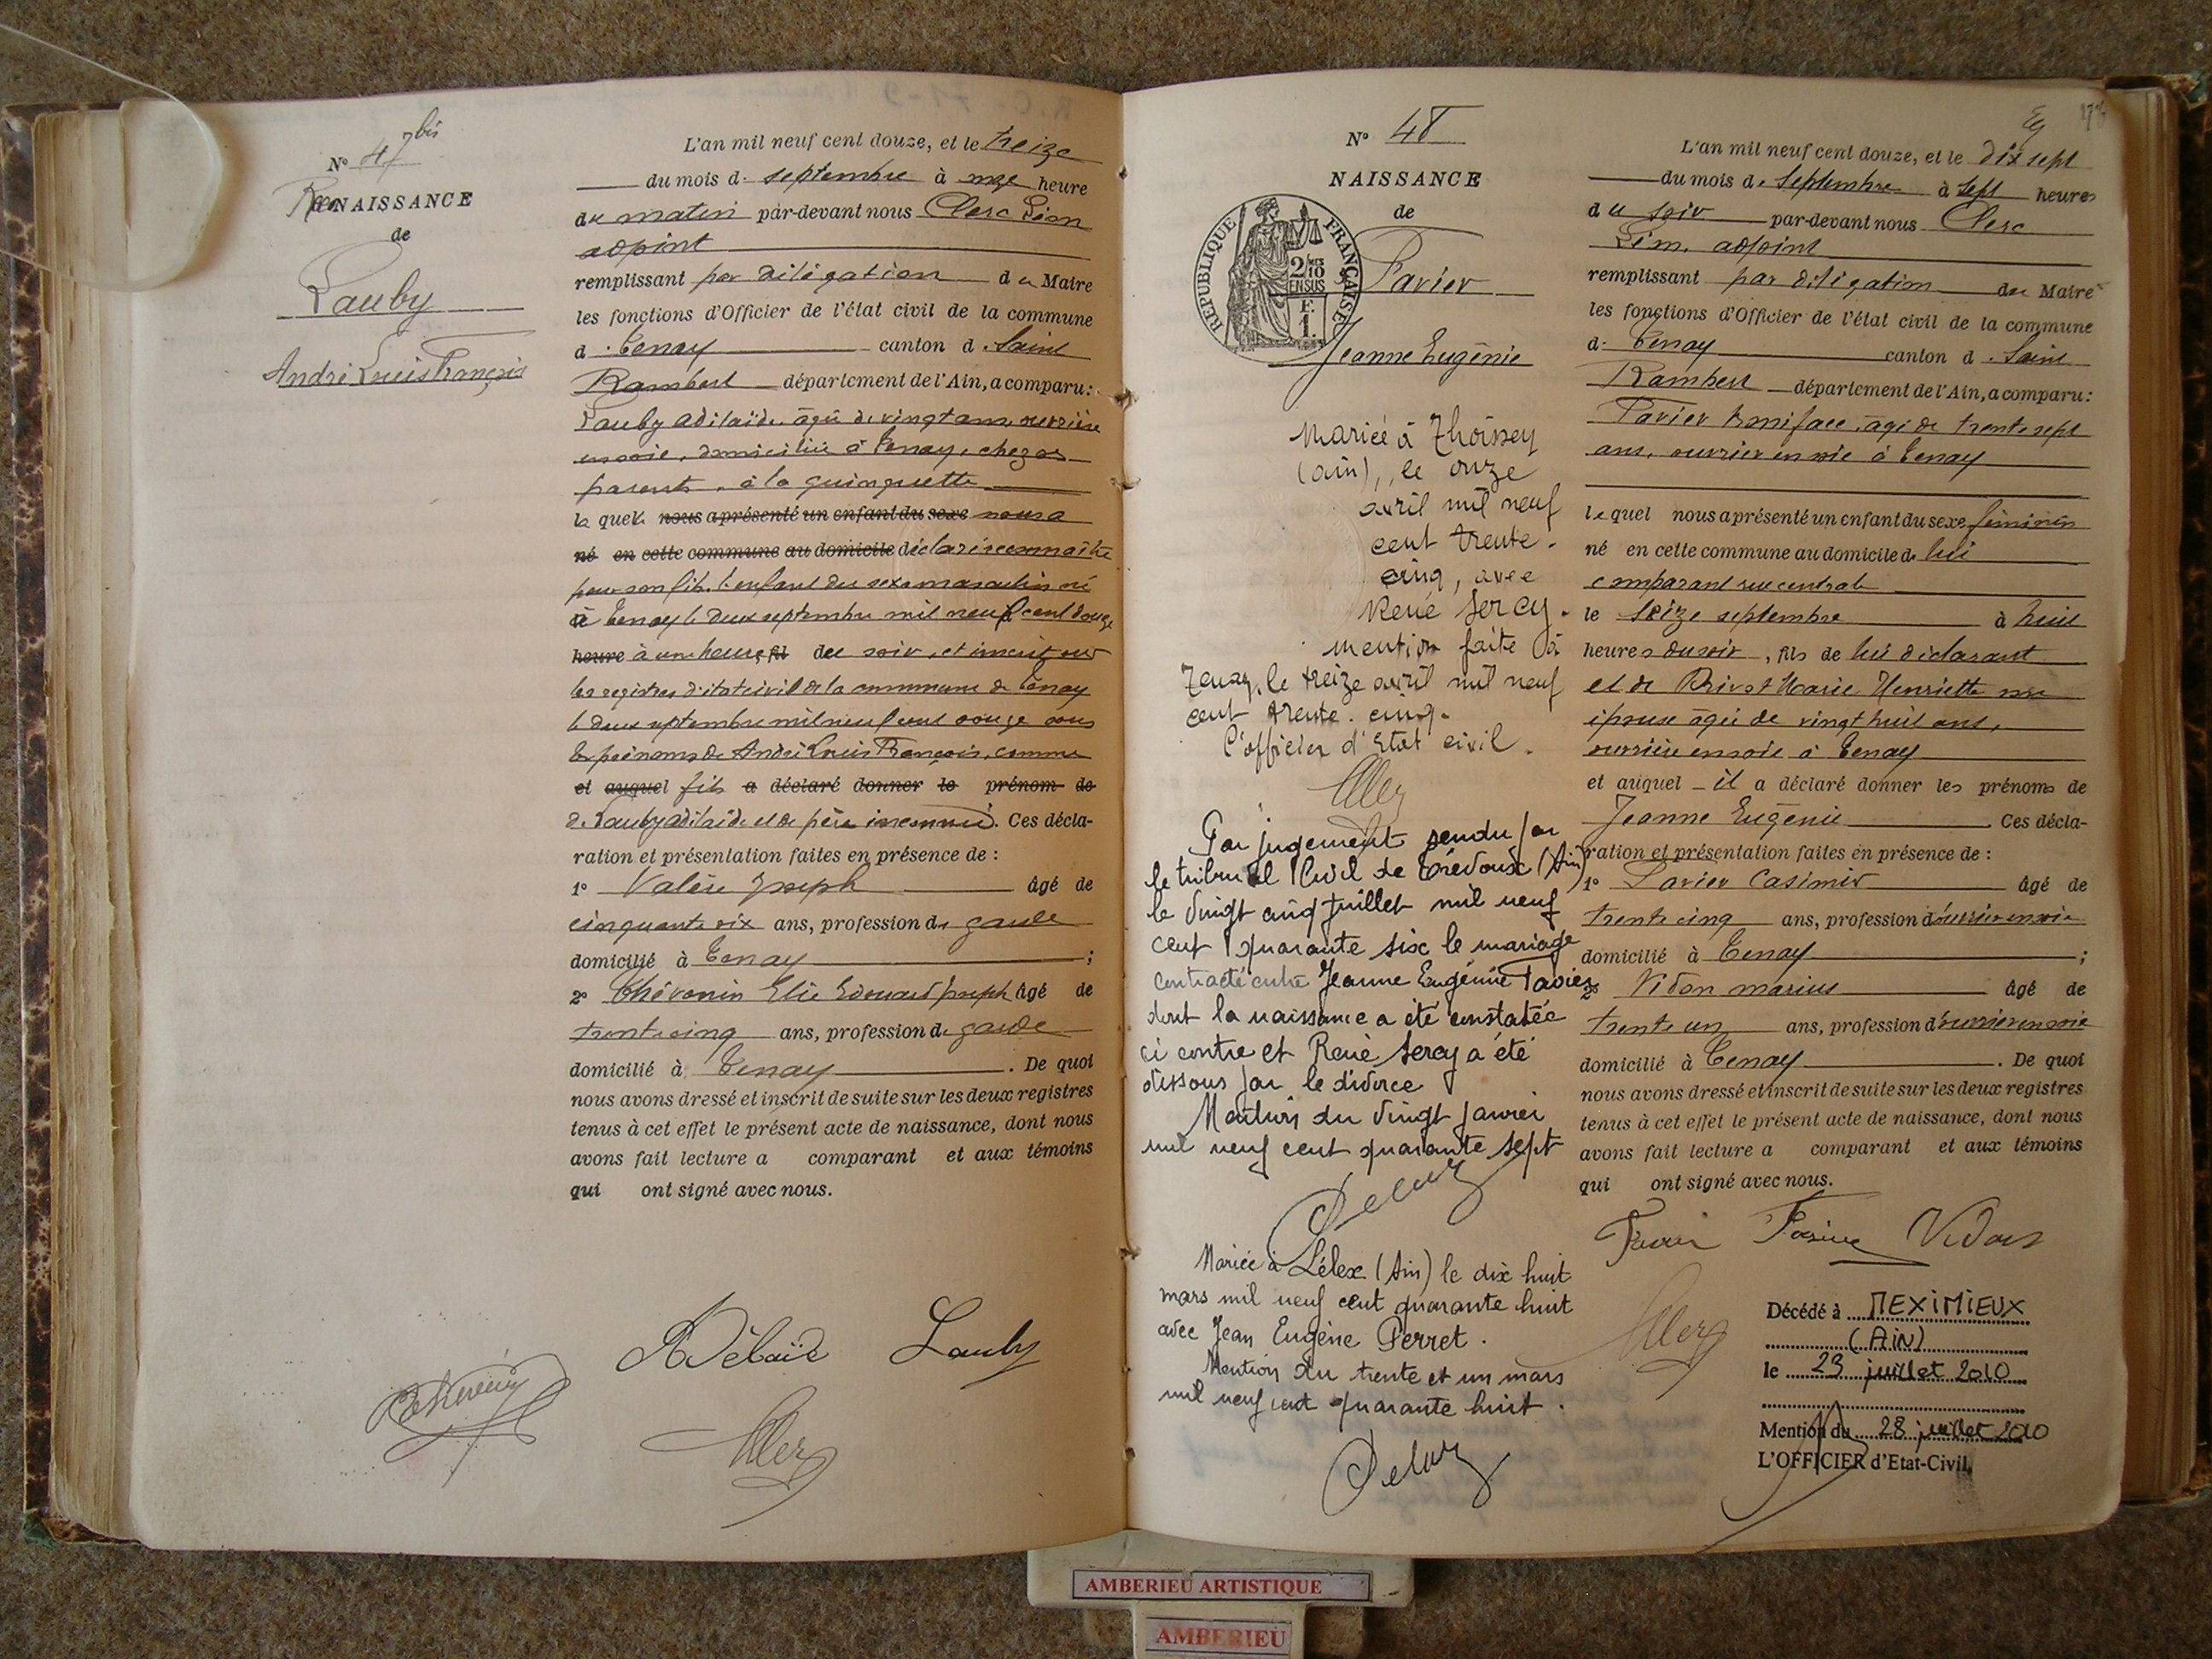 N° 47 bis
Reconnaissance
de
Lauby
André Louis François
L'an mil neuf cent douze, et le treize
du mois de septembre à onze heure
du matin par-devant nous Clerc Léon
adjoint
remplissant par délégation du Maire
les fonctions d'Officier de l'état civil de la commune
de Tenay canton de Saint
Rambert département de l'Ain, a comparu:
Lauby Adélaïde, âgée de vingt ans, ouvrière
en soie, domiciliée à Tenay, chez ses
parents, à la guinguette
laquelle nous a présenté un enfant du sexe nous a
né en cette commune au domicile déclaré reconnaître
pour son fils, l'enfant du sexe masculin né
à Tenay le deux septembre mil neuf cent douze
heure à une heure, fil du soir, et inscrit sur
les registres d'état civil de la commune de Tenay
le deux septembre mil neuf cent douze sous
les prénoms de André Louis François, comme
et auquel fils a déclaré donner le prénom de
de Lauby Adélaïde et de père inconnu. Ces décla-
ration et présentation faites en présence de :
1° Valère Joseph âgé de
cinquante six ans, profession de garde
domicilié à Tenay ;
2° Thévenin Elie Edouard Joseph âgé de
trente cinq ans, profession de garde
domicilié à Tenay . De quoi
nous avons dressé et inscrit de suite sur les deux registres
tenus à cet effet le présent acte de naissance, dont nous
avons fait lecture a comparant et aux témoins
qui ont signé avec nous.
Adélaïde Lauby
N° 48
NAISSANCE
de
Tavier
Jeanne Eugénie
REPUBLIQUE FRANÇAISE
2/10 EN SUS
F.
1.
Mariée à Thoissey
(ain), le onze
avril mil neuf
cent trente-
cinq, avec
René Sercy.
mention faite à
Tenay, le treize avril mil neuf
cent trente-cinq.
L'officier d'Etat civil.
Par jugement rendu par
le tribunal Civil de Trévoux (Ain)
le vingt cinq juillet mil neuf
cent quarante six le mariage
contracté entre Jeanne Eugénie Tavier
dont la naissance a été constatée
ci contre et René Sercy a été
dissous par le divorce
Mention du vingt janvier
mil neuf cent quarante sept
Mariée à Lélex (Ain) le dix huit
mars mil neuf cent quarante huit
avec Jean Eugène Perret.
Mention du trente et un mars
mil neuf cent quarante huit.
L'an mil neuf cent douze, et le dix sept
du mois de septembre à sept heures
du soir par-devant nous Clerc
Léon, adjoint
remplissant par délégation du Maire
les fonctions d'Officier de l'état civil de la commune
de Tenay canton de Saint
Rambert département de l'Ain, a comparu:
Tavier Boniface, âgé de trente sept
ans, ouvrier en soie à Tenay
lequel nous a présenté un enfant du sexe féminin
né en cette commune au domicile de lui
comparant rue centrale
le seize septembre à huit
heures du soir, fils de lui déclarant
et de Rivat Marie Henriette son
épouse âgée de vingt huit ans,
ouvrière en soie à Tenay
et auquel il a déclaré donner les prénoms de
Jeanne Eugénie Ces décla-
ration et présentation faites en présence de :
1° Tavier Casimir âgé de
trente cinq ans, profession d'ouvrier en soie
domicilié à Tenay ;
2° Vidon Marius âgé de
trente un ans, profession d'ouvrier en soie
domicilié à Tenay . De quoi
nous avons dressé et inscrit de suite sur les deux registres
tenus à cet effet le présent acte de naissance, dont nous
avons fait lecture a comparant et aux témoins
qui ont signé avec nous.
Décédé à MEXIMIEUX
(AIN)
le 23 juillet 2010
Mention du 28 juillet 2010
L'OFFICIER d'Etat-Civil,
AMBERIEU ARTISTIQUE
AMBERIEU